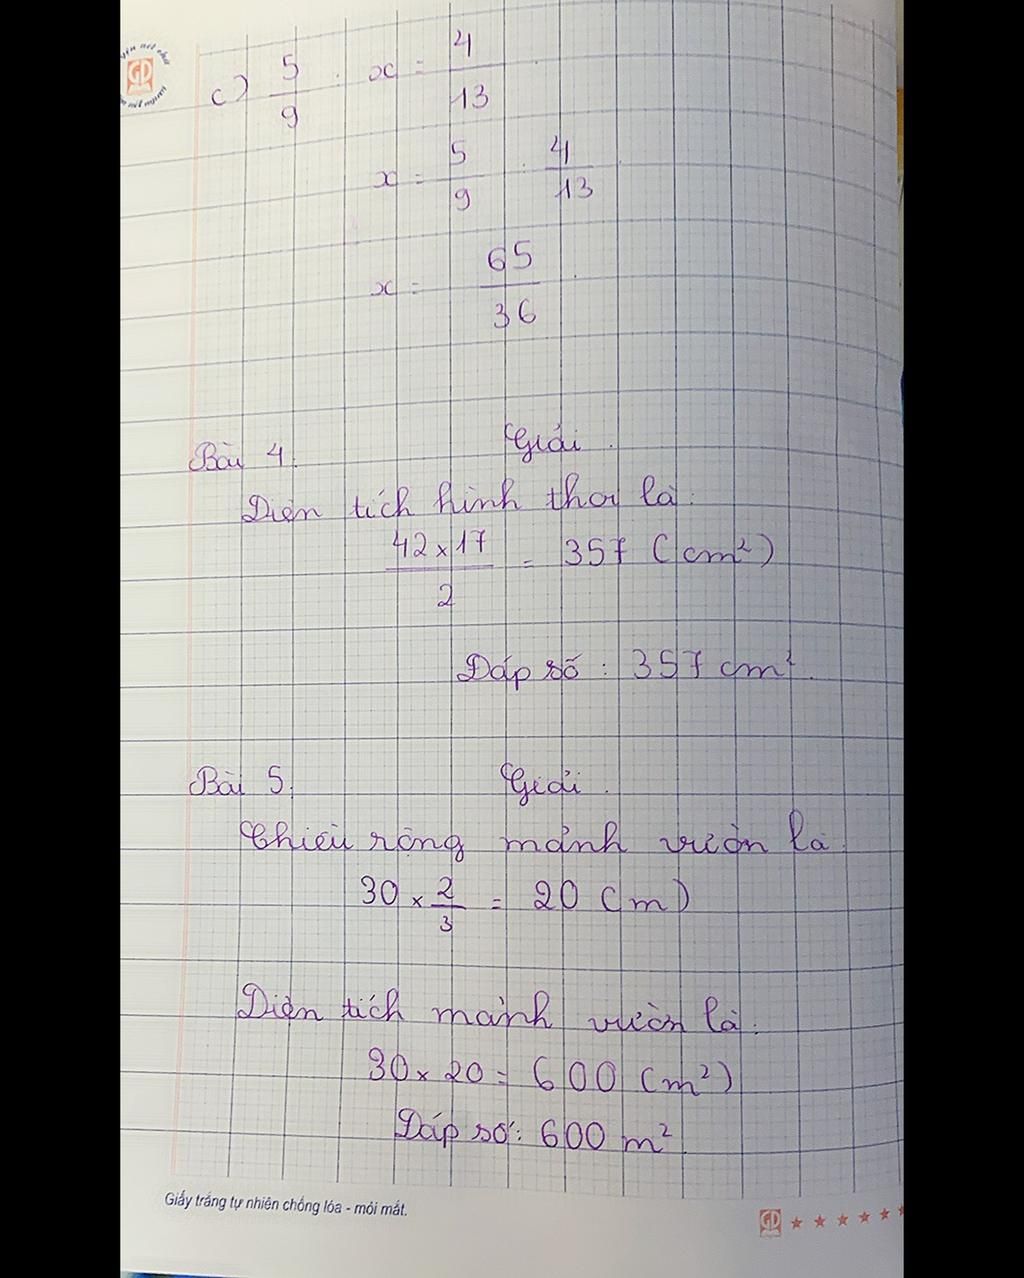 c) 5/9 : x = 4/13
x = 5/9 : 4/13
x = 65/36
Bài 4. Giải.
Diện tích hình thoi là:
42 x 17 / 2 = 357 (cm²)
Đáp số: 357 cm².
Bài 5. Giải.
Chiều rộng mảnh vườn là:
30 x 2/3 = 20 (m)
Diện tích mảnh vườn là:
30 x 20 = 600 (m²)
Đáp số: 600 m².
Giấy trắng tự nhiên chống lóa - mỏi mắt.
GD